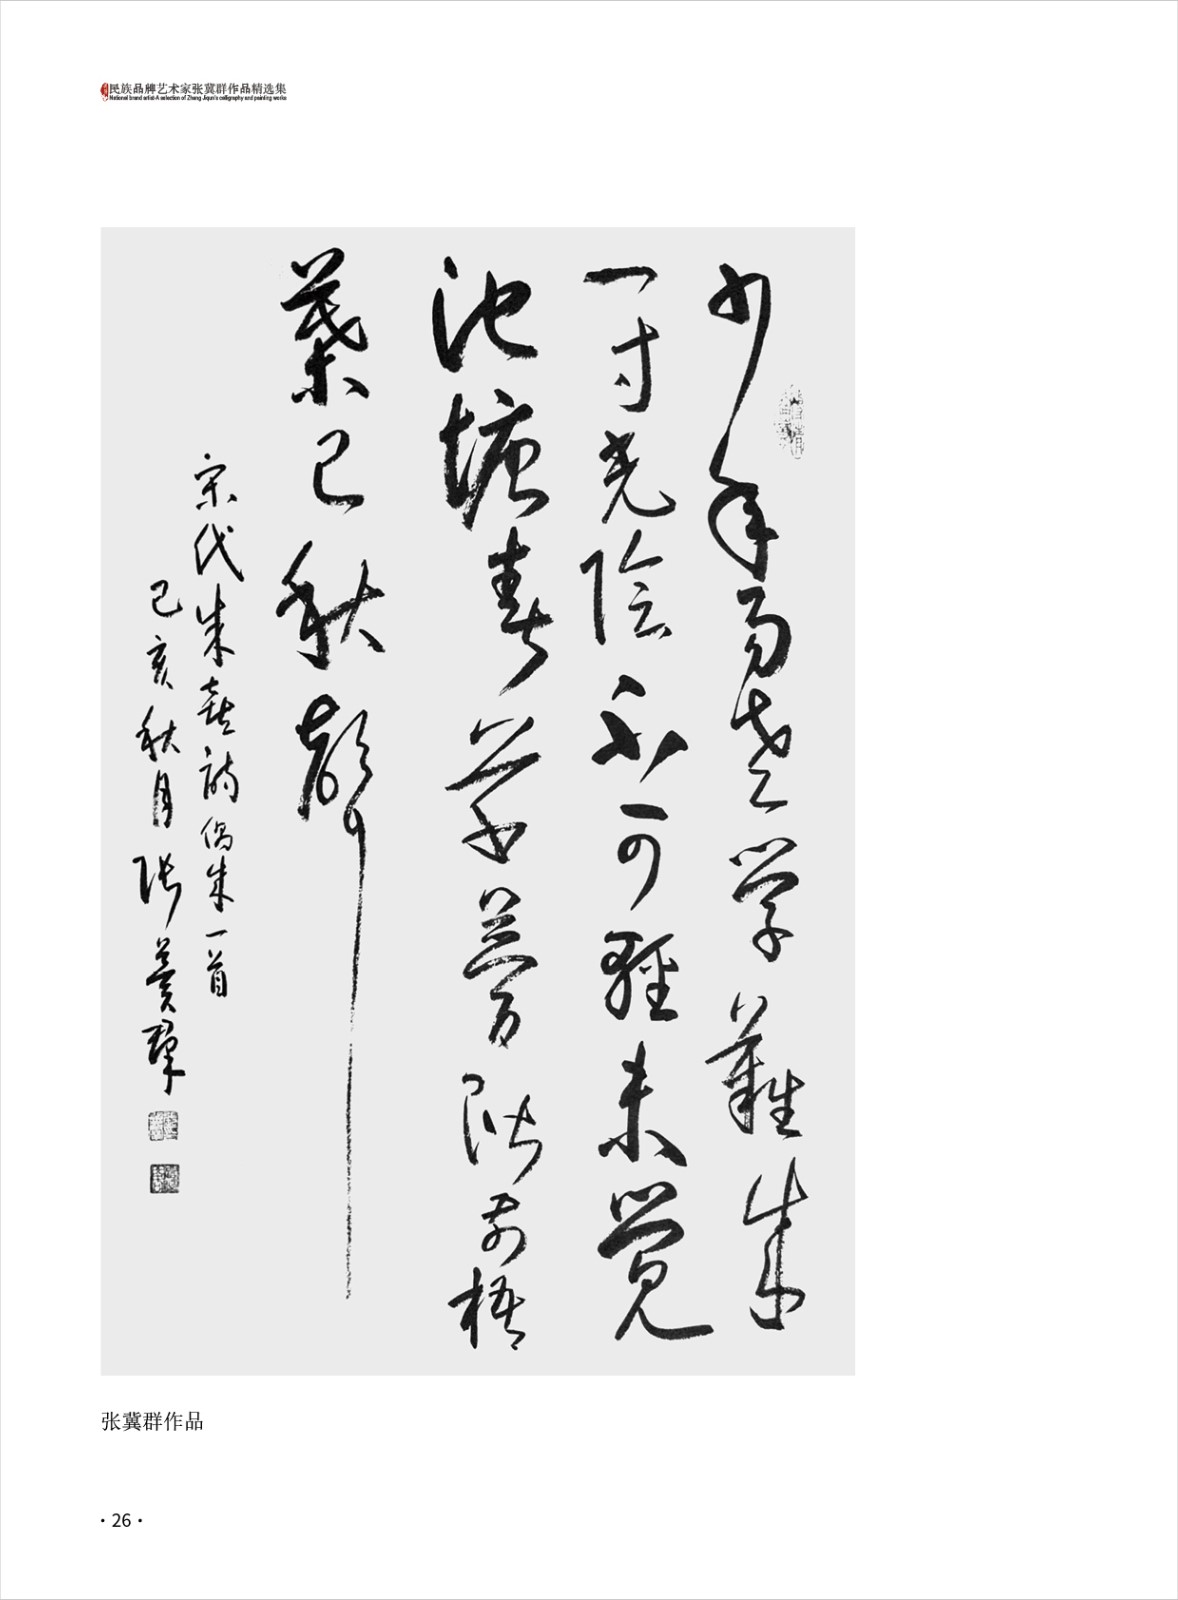 民族品牌艺术家张冀群作品精选集
National brand artist-A selection of Zhang Jiqun's calligraphy and painting works
少年易老学難成
一寸光陰不可輕未覺
池塘春草夢階前梧
葉已秋聲
宋代朱熹詩偶成一首
己亥秋月張冀群
张冀群作品
·26·